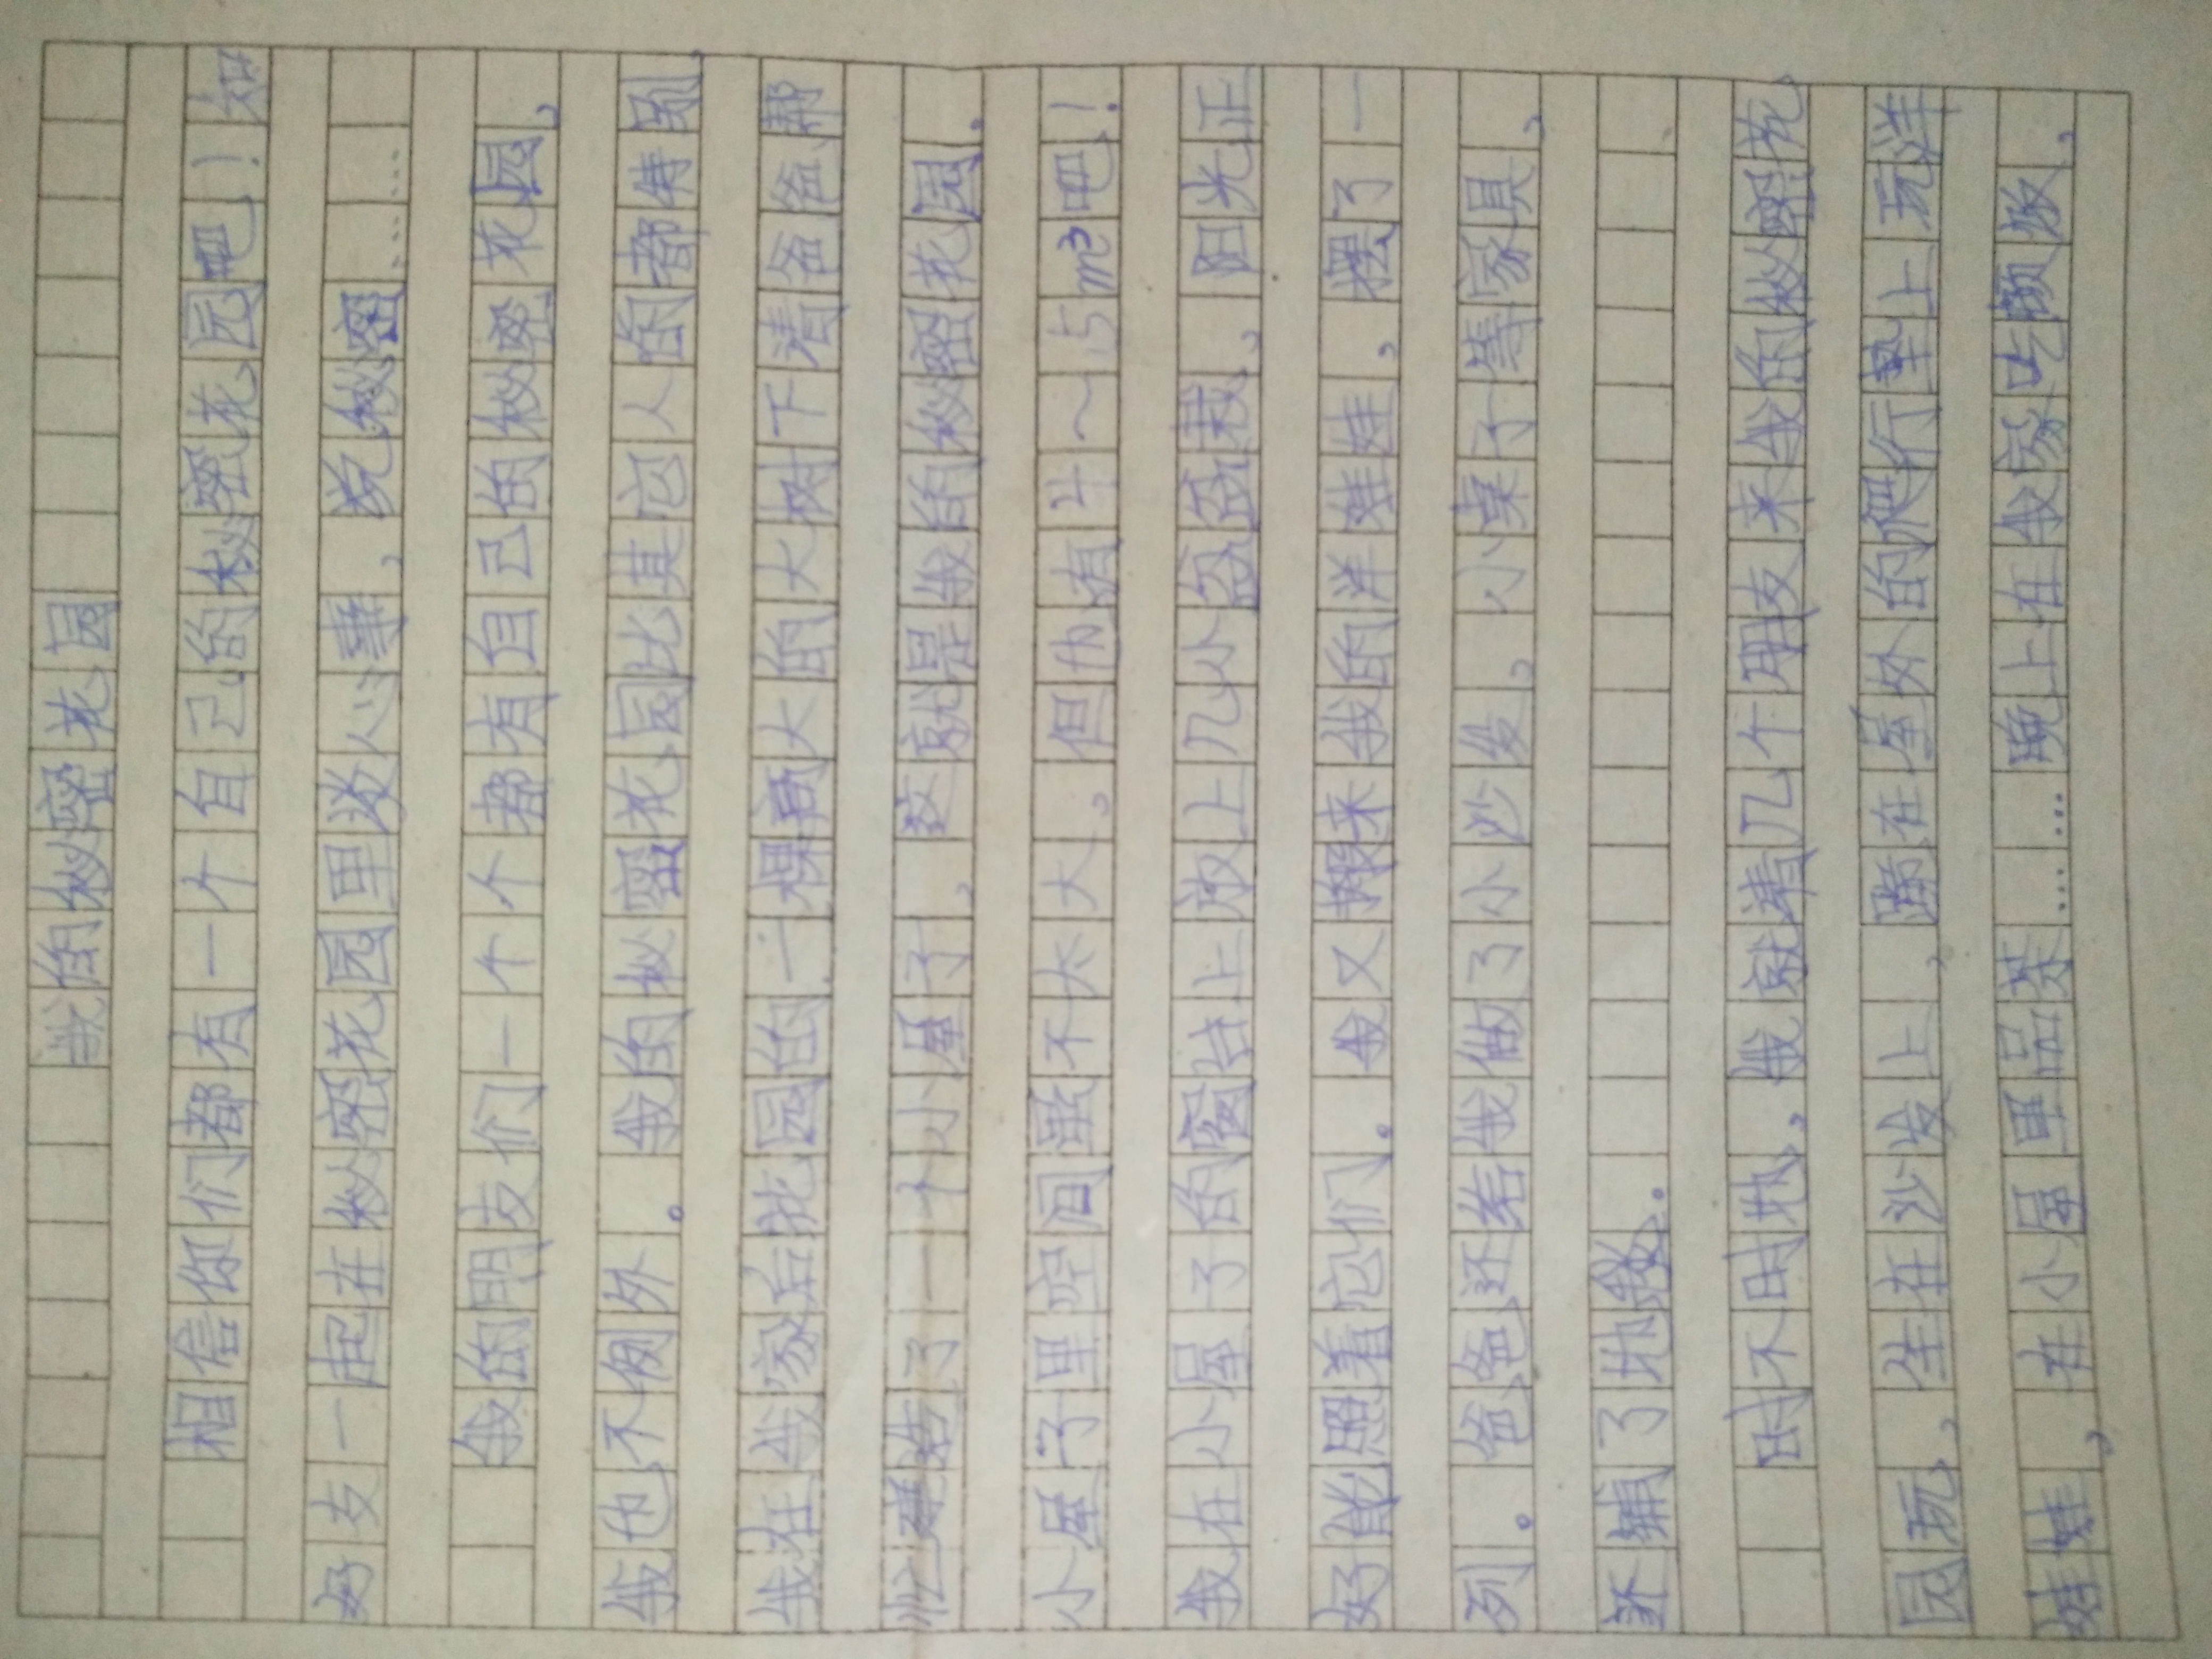 我的秘密花园
相信你们都有一个自己的秘密花园吧！和
好友一起在秘密花园里谈心事，说秘密……
我的朋友们一个个都有自己的秘密花园，
我也不例外。我的秘密花园比其它人的都特别，
我在我家后花园的一棵高大的大树下请爸爸帮
忙建造了一个小屋子，这就是我的秘密花园。
小屋子里空间虽不太大。但也有4～15m³吧！
我在小屋子的窗台上放上几个盆栽，阳光正
好能照着它们。我又搬来我的洋娃娃，摆了一
列。爸爸还给我做了小沙发，小桌子等家具，
还铺了地毯。
时不时地，我就请几个朋友来我的秘密花
园玩，坐在沙发上，躺在屋外的爬行垫上玩洋
娃娃，在小屋里品茶……晚上在我家吃顿饭，